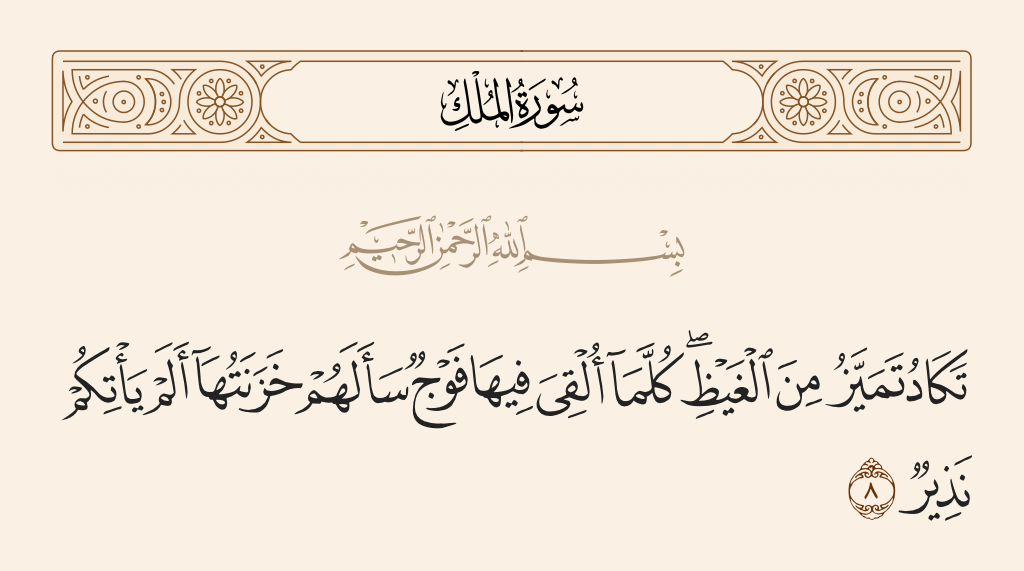 سُورَةُ الْمُلْكِ
بِسْمِ ٱللَّهِ ٱلرَّحْمَٰنِ ٱلرَّحِيمِ
تَكَادُ تَمَيَّزُ مِنَ ٱلْغَيْظِ ۖ كُلَّمَآ أُلْقِىَ فِيهَا فَوْجٌ سَأَلَهُمْ خَزَنَتُهَآ أَلَمْ يَأْتِكُمْ
نَذِيرٌ ٨